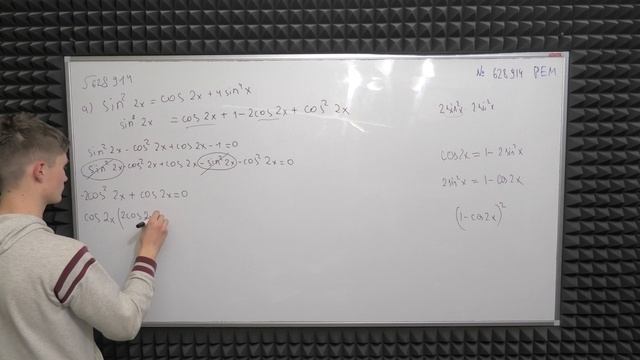 √628914
№ 628914 РЕМ
а) sin² 2x = cos 2x + 4 sin⁴ x
sin² 2x = cos 2x + 1 - 2cos 2x + cos² 2x
sin² 2x - cos² 2x + cos 2x - 1 = 0
sin² 2x - cos² 2x + cos 2x - sin² 2x - cos² 2x = 0
-2cos² 2x + cos 2x = 0
cos 2x (2cos 2x
2 sin²x · 2 sin²x
cos 2x = 1 - 2 sin²x
2 sin²x = 1 - cos 2x
(1 - cos 2x)²